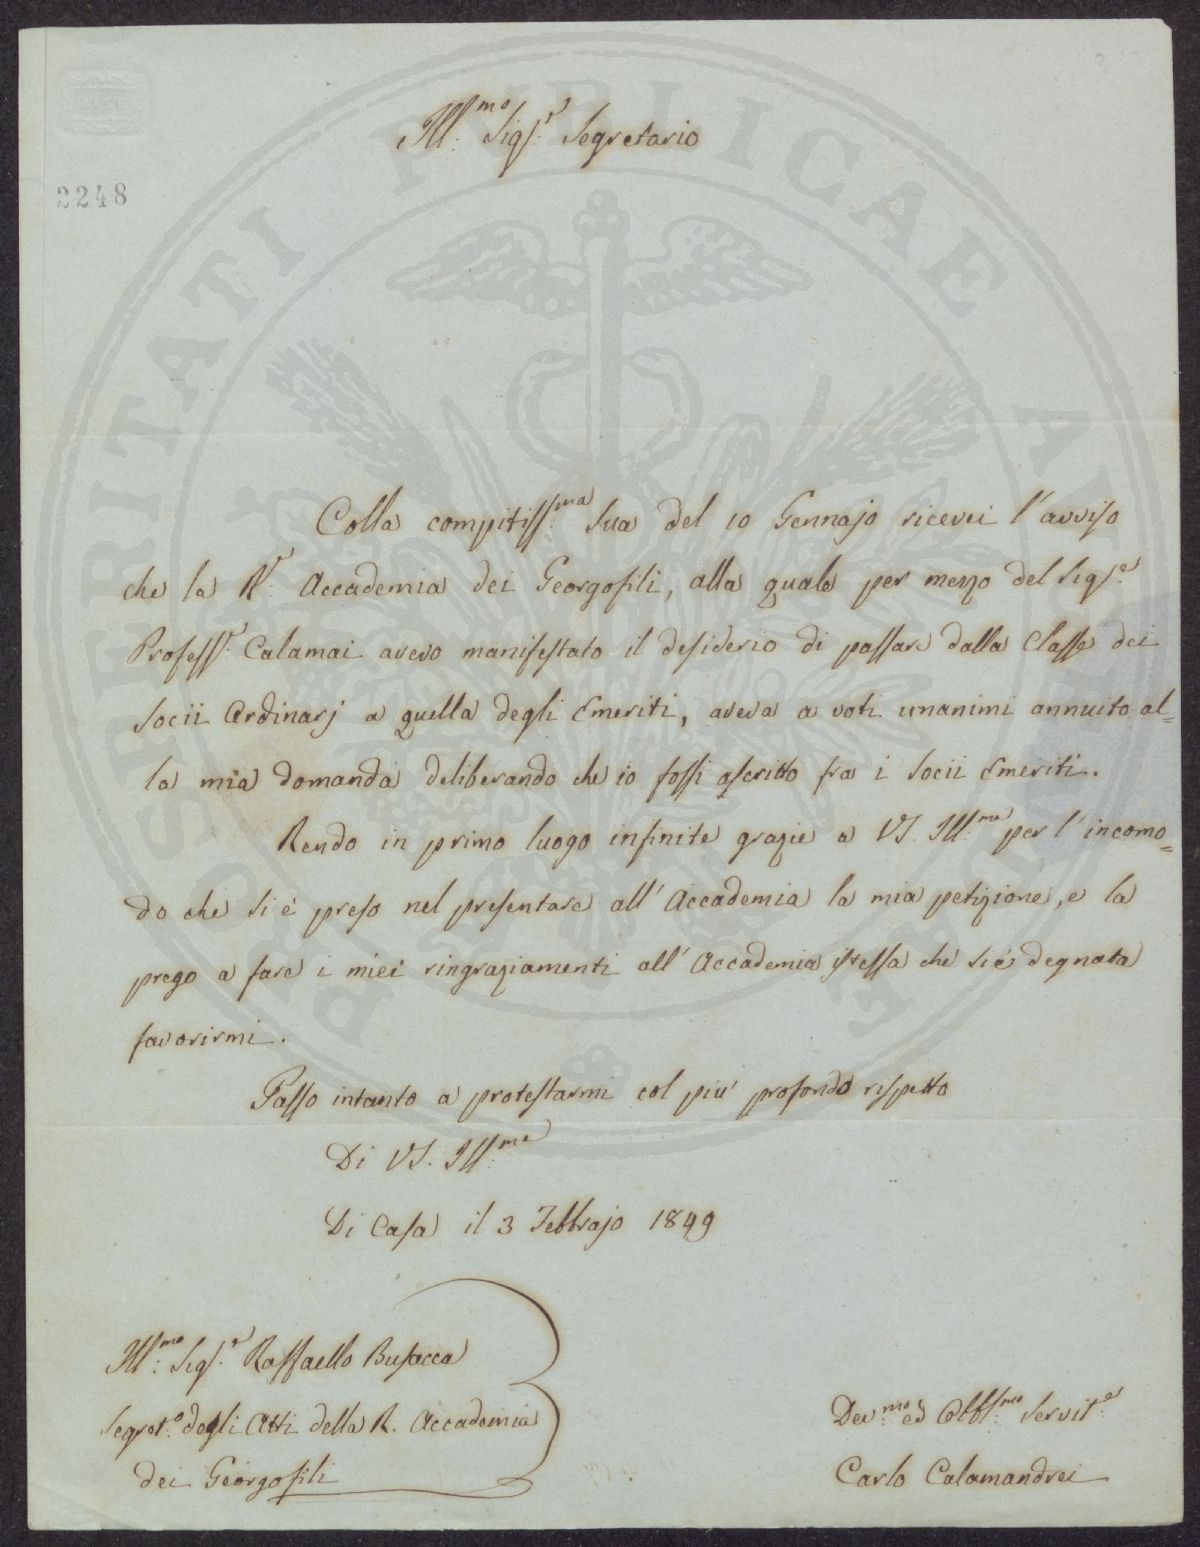 Ill.mo Sig.r Segretario
2248
Colla compitiss.ma Sua del 10 Gennajo ricevei l'avviso
che la R. Accademia dei Georgofili, alla quale per mezzo del Sig.r
Profess.r Calamai avevo manifestato il desiderio di passare dalla Classe dei
Socii Ordinarj a quella degli Emeriti, aveva a voti unanimi annuito al=
la mia domanda deliberando che io fossi ascritto fra i Socii Emeriti.
Rendo in primo luogo infinite grazie a VS. Ill.ma per l'incomo=
do che si è preso nel presentare all'Accademia la mia petizione, e la
prego a fare i miei ringraziamenti all'Accademia istessa che si è degnata
favorirmi.
Passo intanto a protestarmi col piu' profondo rispetto
Di VS. Ill.ma
Di Casa il 3 Febbrajo 1849
Ill.mo Sig.r Raffaello Busacca
Segret.o degli Atti della R. Accademia
dei Georgofili
Dev.mo ed Obbl.mo Servit.e
Carlo Calamandrei
PROSPERITATI PUBLICAE AUGENDAE